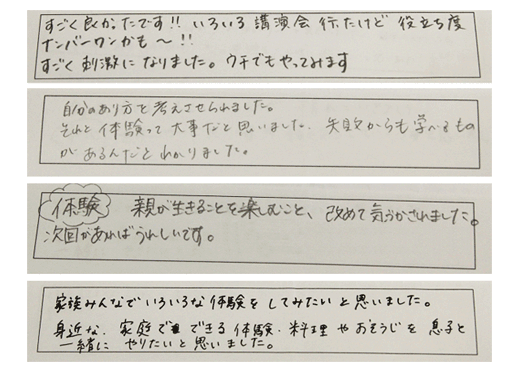 すごく良かったです!! いろいろ講演会行ったけど 役立ち度
ナンバーワンかも〜!!
すごく刺激になりました。ウチでもやってみます
自分のあり方を考えさせられました。
それと体験って大事だと思いました。失敗からも学べるもの
があるんだとわかりました。
体験 親が生きることを楽しむこと、改めて気づかされました。
次回があればうれしいです。
家族みんなでいろいろな体験をしてみたいと思いました。
身近な、家庭でできる体験・料理やおそうじを息子と
一緒にやりたいと思いました。